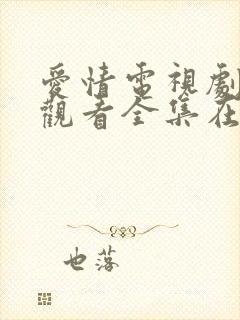 愛情電視劇
觀看全集在
也落